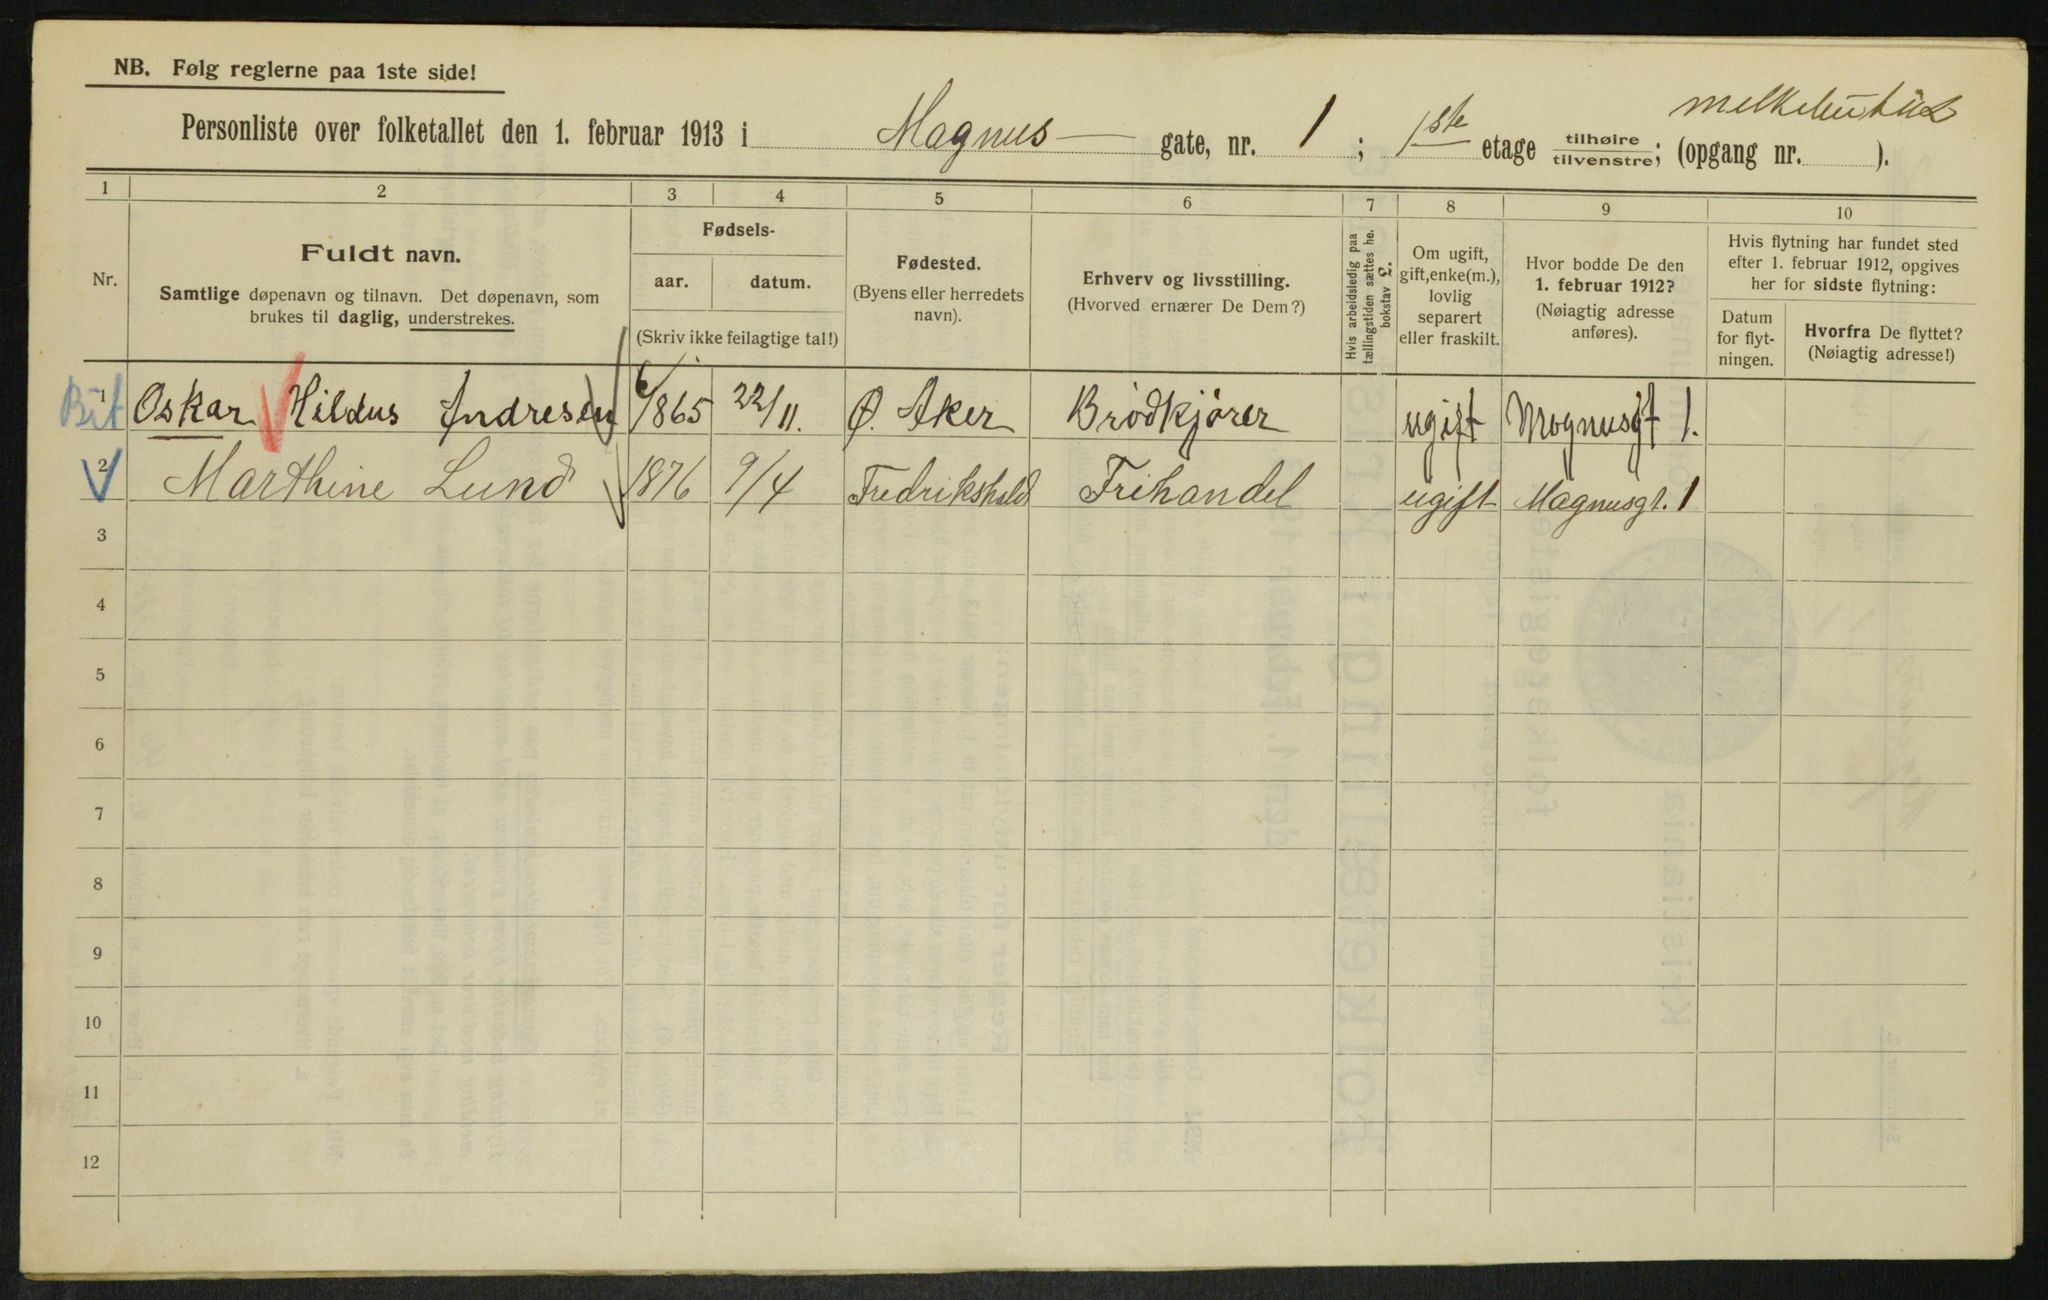 NB. Følg reglerne paa 1ste side!
Personliste over folketallet den 1. februar 1913 i Magnus gate, nr. 1; 1ste etage tilhøire tilvenstre; (opgang nr. ).
1 2 3 4 5 6 7 8 9 10
Nr.
Fuldt navn.
Samtlige døpenavn og tilnavn. Det døpenavn, som
brukes til daglig, understrekes.
Fødsels-
aar. datum.
(Skriv ikke feilagtige tal!)
Fødested.
(Byens eller herredets
navn).
Erhverv og livsstilling.
(Hvorved ernærer De Dem?)
Hvis arbeidsledig paa
tællingstiden sættes he.
bokstav L.
Om ugift,
gift, enke(m.),
lovlig
separert
eller fraskilt.
Hvor bodde De den
1. februar 1912?
(Nøiagtig adresse
anføres).
Hvis flytning har fundet sted
efter 1. februar 1912, opgives
her for sidste flytning:
Datum
for flyt-
ningen.
Hvorfra De flyttet?
(Nøiagtig adresse!)
1 Oskar Hildus Andresen 1865 22/11. Ø. Aker Brödkjører ugift Magnusgt 1.
2 Marthine Lund 1876 9/4 Fredrikshald Frihandel ugift Magnusgt. 1
3
4
5
6
7
8
9
10
11
12